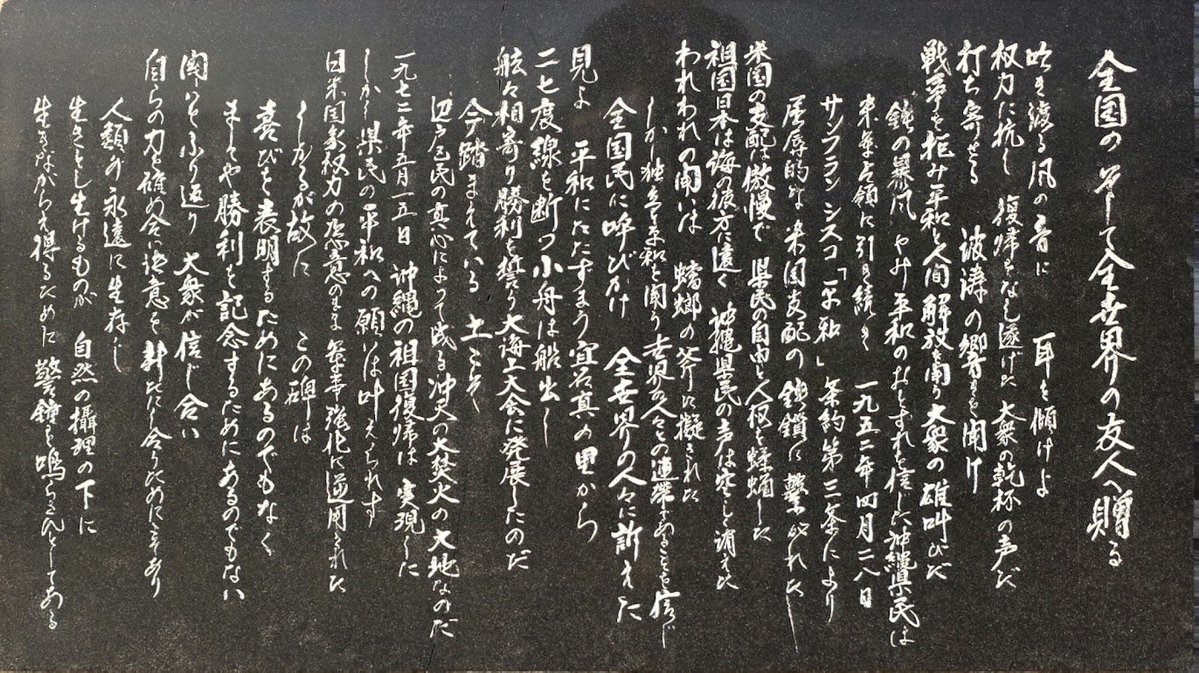 全国のそして全世界の友人へ贈る
吹き渡る風の音に　耳を傾けよ
权力に抗し　復帰をなし遂げた　大衆の乾杯の声だ
打ち寄せる　波濤の響きを聞け
戦争を拒み平和と人間解放を闘う大衆の雄叫びだ
鉄の暴風やみ平和のおとずれを信じた沖縄県民は
米軍占領に引き続き　一九五二年四月二八日
サンフランシスコ「平和」条約第三条により
屈辱的な米国支配の鉄鎖に繋がれた
米国の支配は傲慢で　県民の自由と人权を蹂躙した
祖国日本は海の彼方に遠く　沖縄県民の声は空しく消えた
われわれの闘いは　蟷螂の斧に擬された
しかし独立と平和を闘う世界の人々との連帯あることを信じ
全国民に呼びかけ　全世界の人々に訴えた
見よ　平和にたたずまう宜名真の里から
二七度線を断つ小舟は船出し
舷々相寄り勝利を誓う大海上大会に発展したのだ
今踏まえている　土こそ
辺戸区民の真心によって成る沖天の大焚火の大地なのだ
一九七二年五月一五日　沖縄の祖国復帰は　実現した
しかし県民の平和への願いは叶えられず
日米国家权力の恣意のまま軍事強化に逆用された
しかるが故に　この碑は
喜びを表明するためにあるのでもなく
ましてや勝利を記念するためにあるのでもない
闘いをふり返り　大衆が信じ合い
自らの力を確め合い決意を新たにし合うためにこそあり
人類が永遠に生存し
生きとし生けるものが　自然の攝理の下に
生きながらえ得るために　警鐘を鳴らさんとしてある